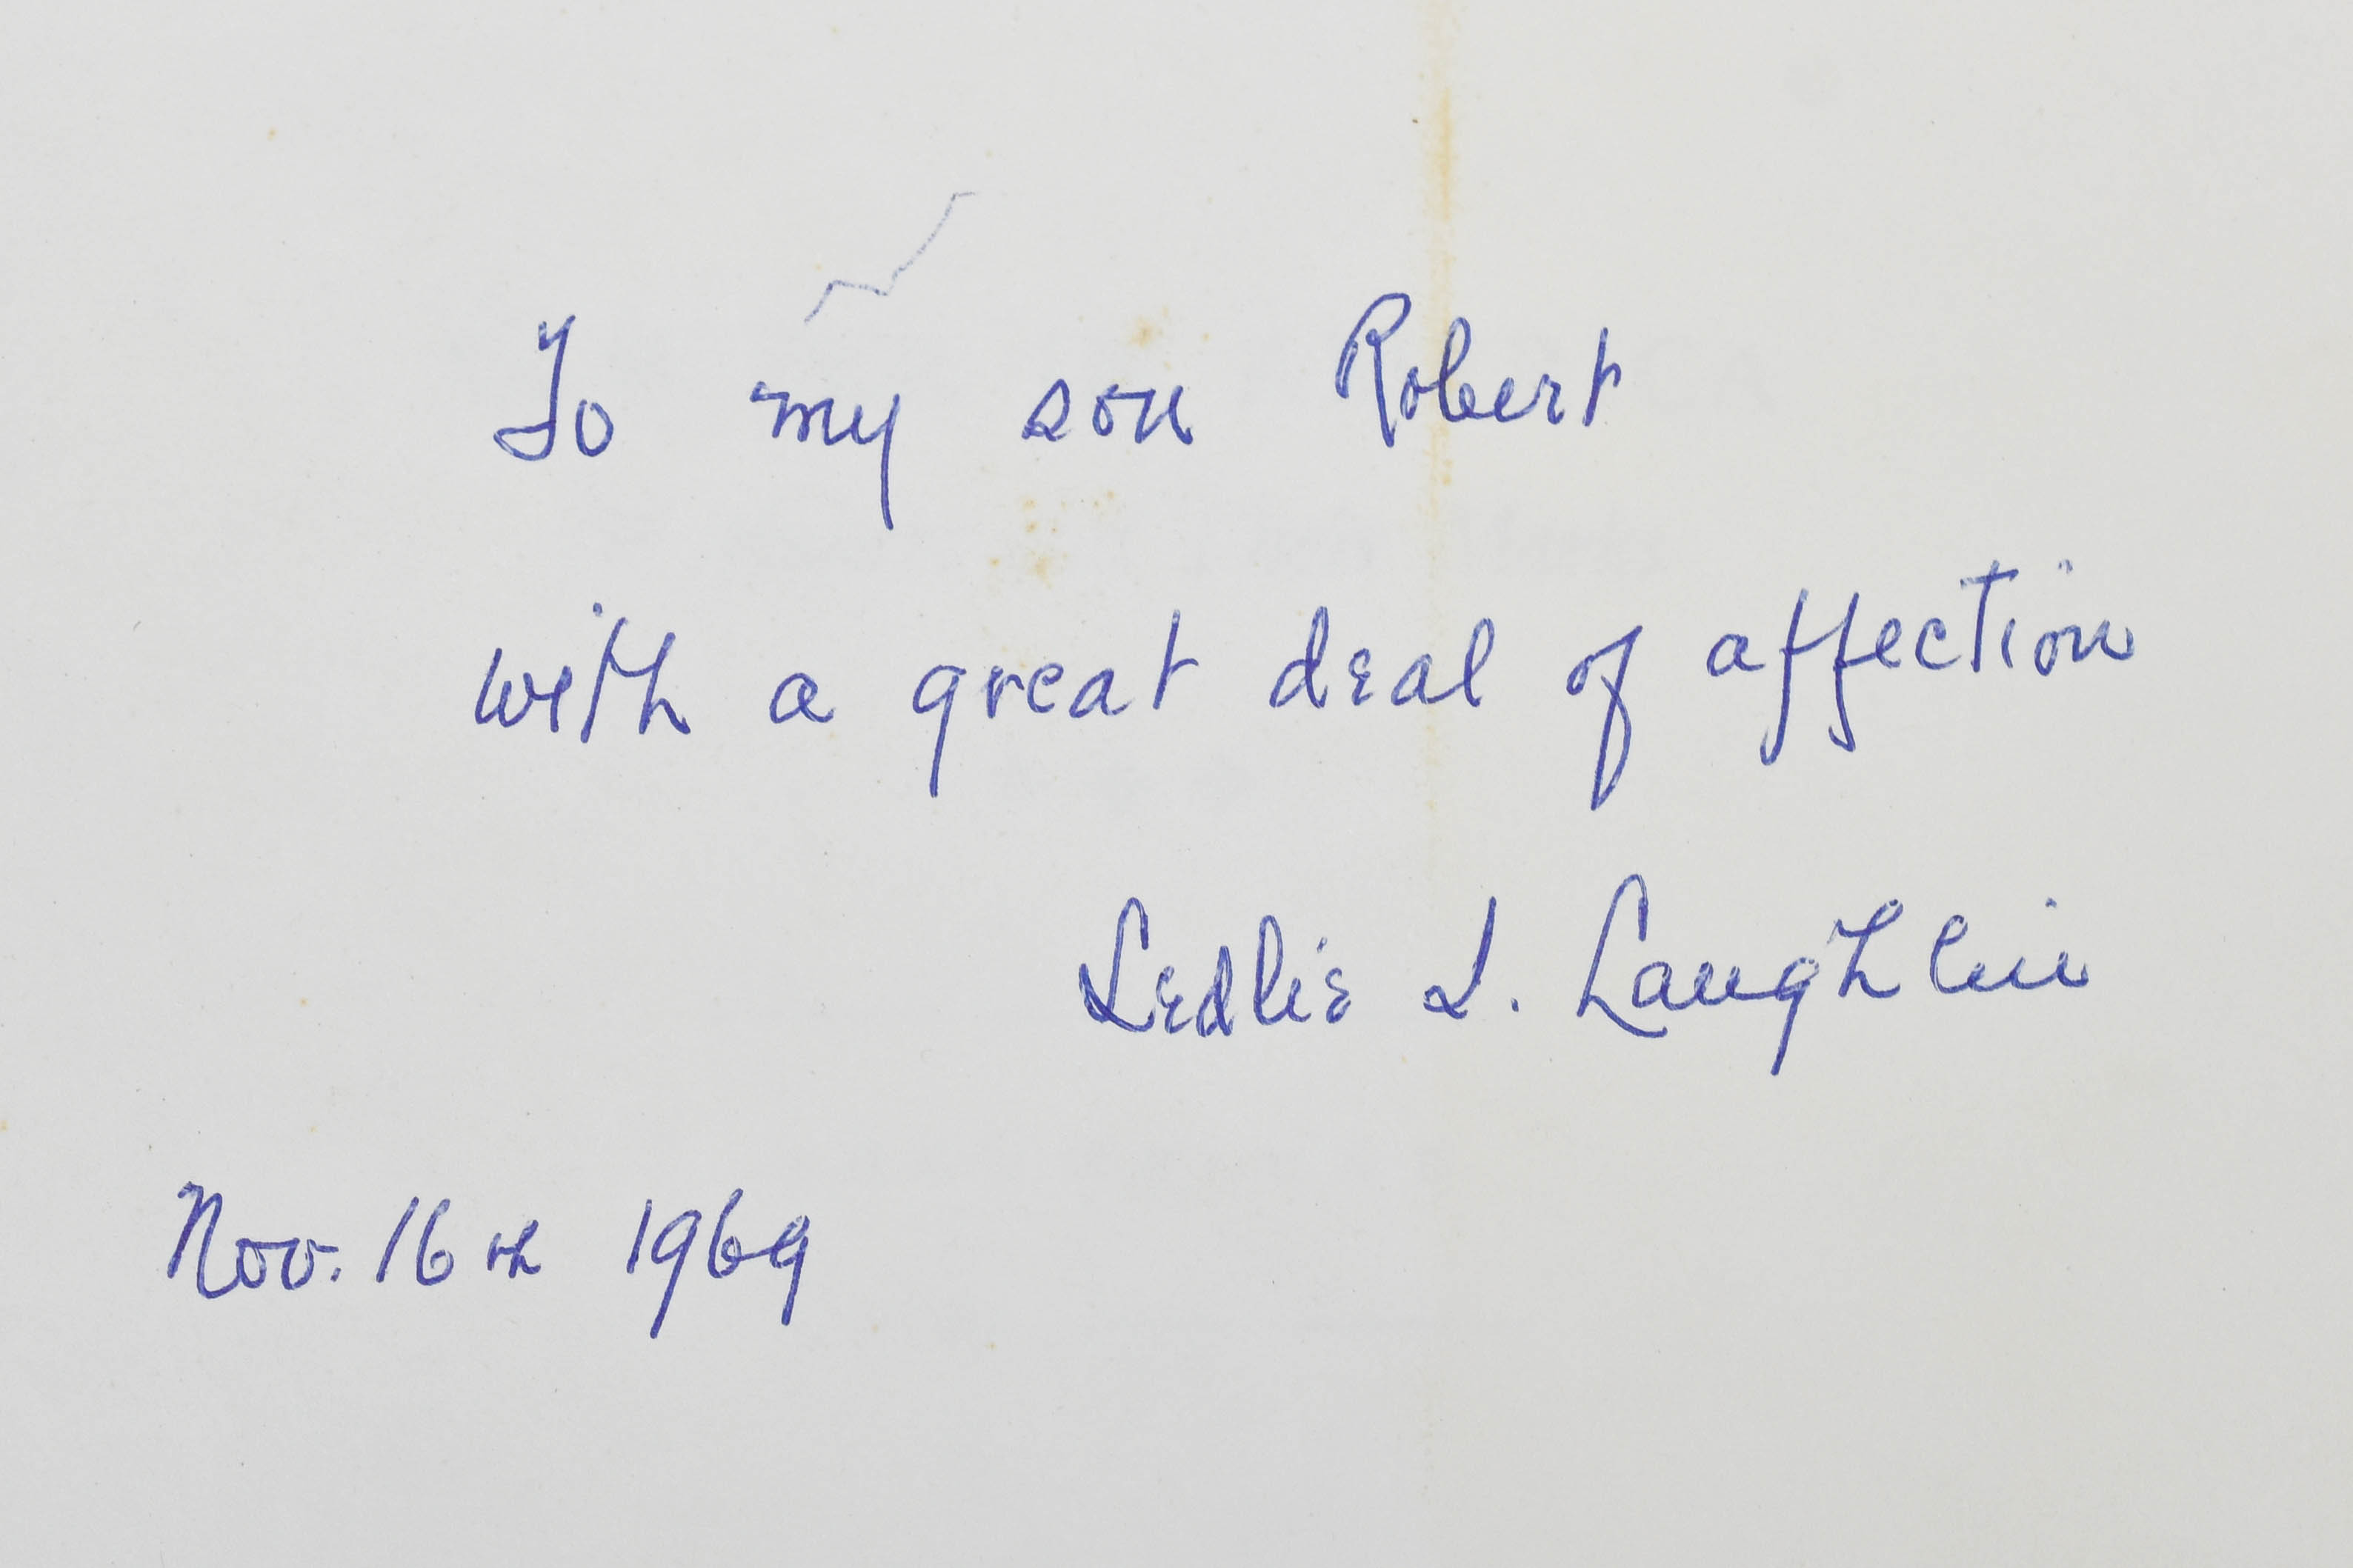 To my son Robert
with a great deal of affection
Leslie I. Laughlin
Nov. 16th 1969